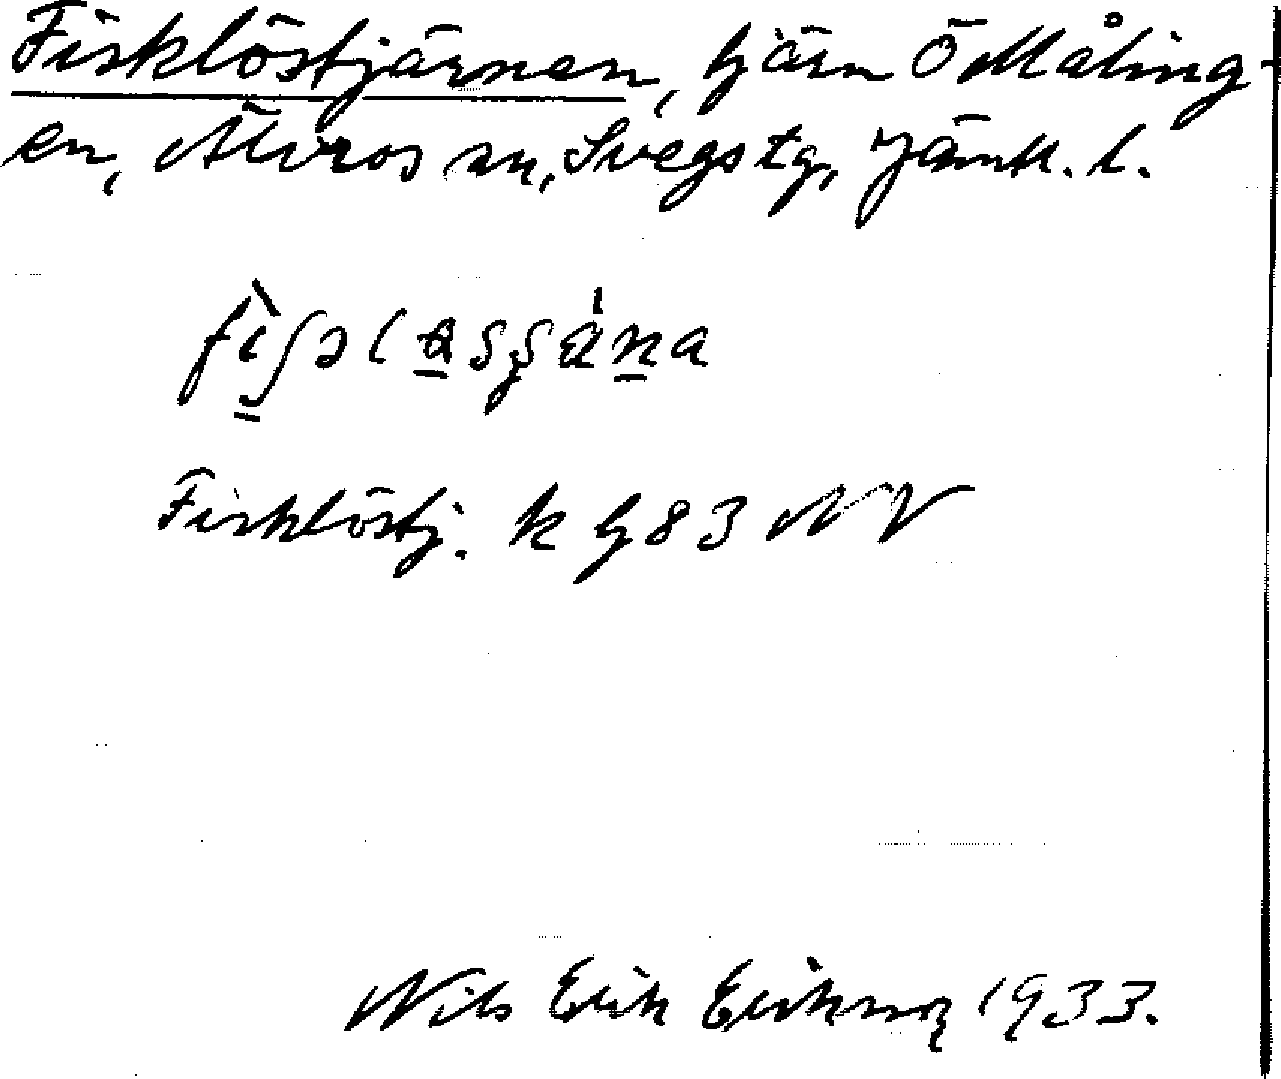 Fisklöstjärnen, tjärn Ö Måling-
en, Älvros sn, Svegs tg, Jämtl. l.
Fisklöstj. k tj 83 NV
Nils Erik Eriksson 1933.